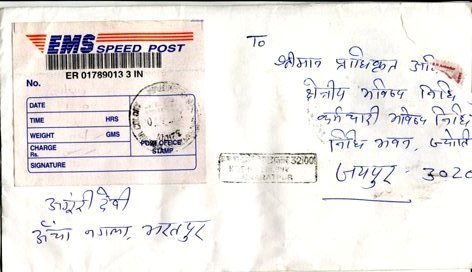 EMS SPEED POST
ER 01789013 3 IN
No.
DATE
TIME HRS
WEIGHT GMS
CHARGE
Rs.
POST OFFICE
STAMP
SIGNATURE
To
श्रीमान प्राधिकृत
क्षेत्रीय भविष्य निधि
कर्मचारी भविष्य निधि
निधि भवन, ज्योति
जयपुर - 3020
अंगूरी देवी
ऊँचा नगला, भरतपुर